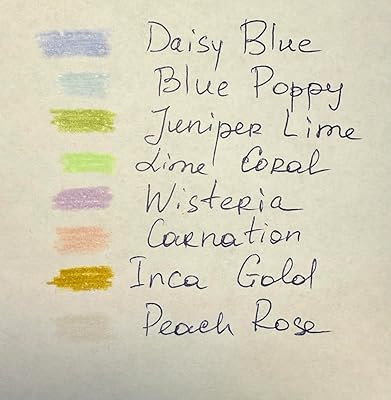 Daisy Blue
Blue Poppy
Juniper Lime
Lime Coral
Wisteria
Carnation
Inca Gold
Peach Rose